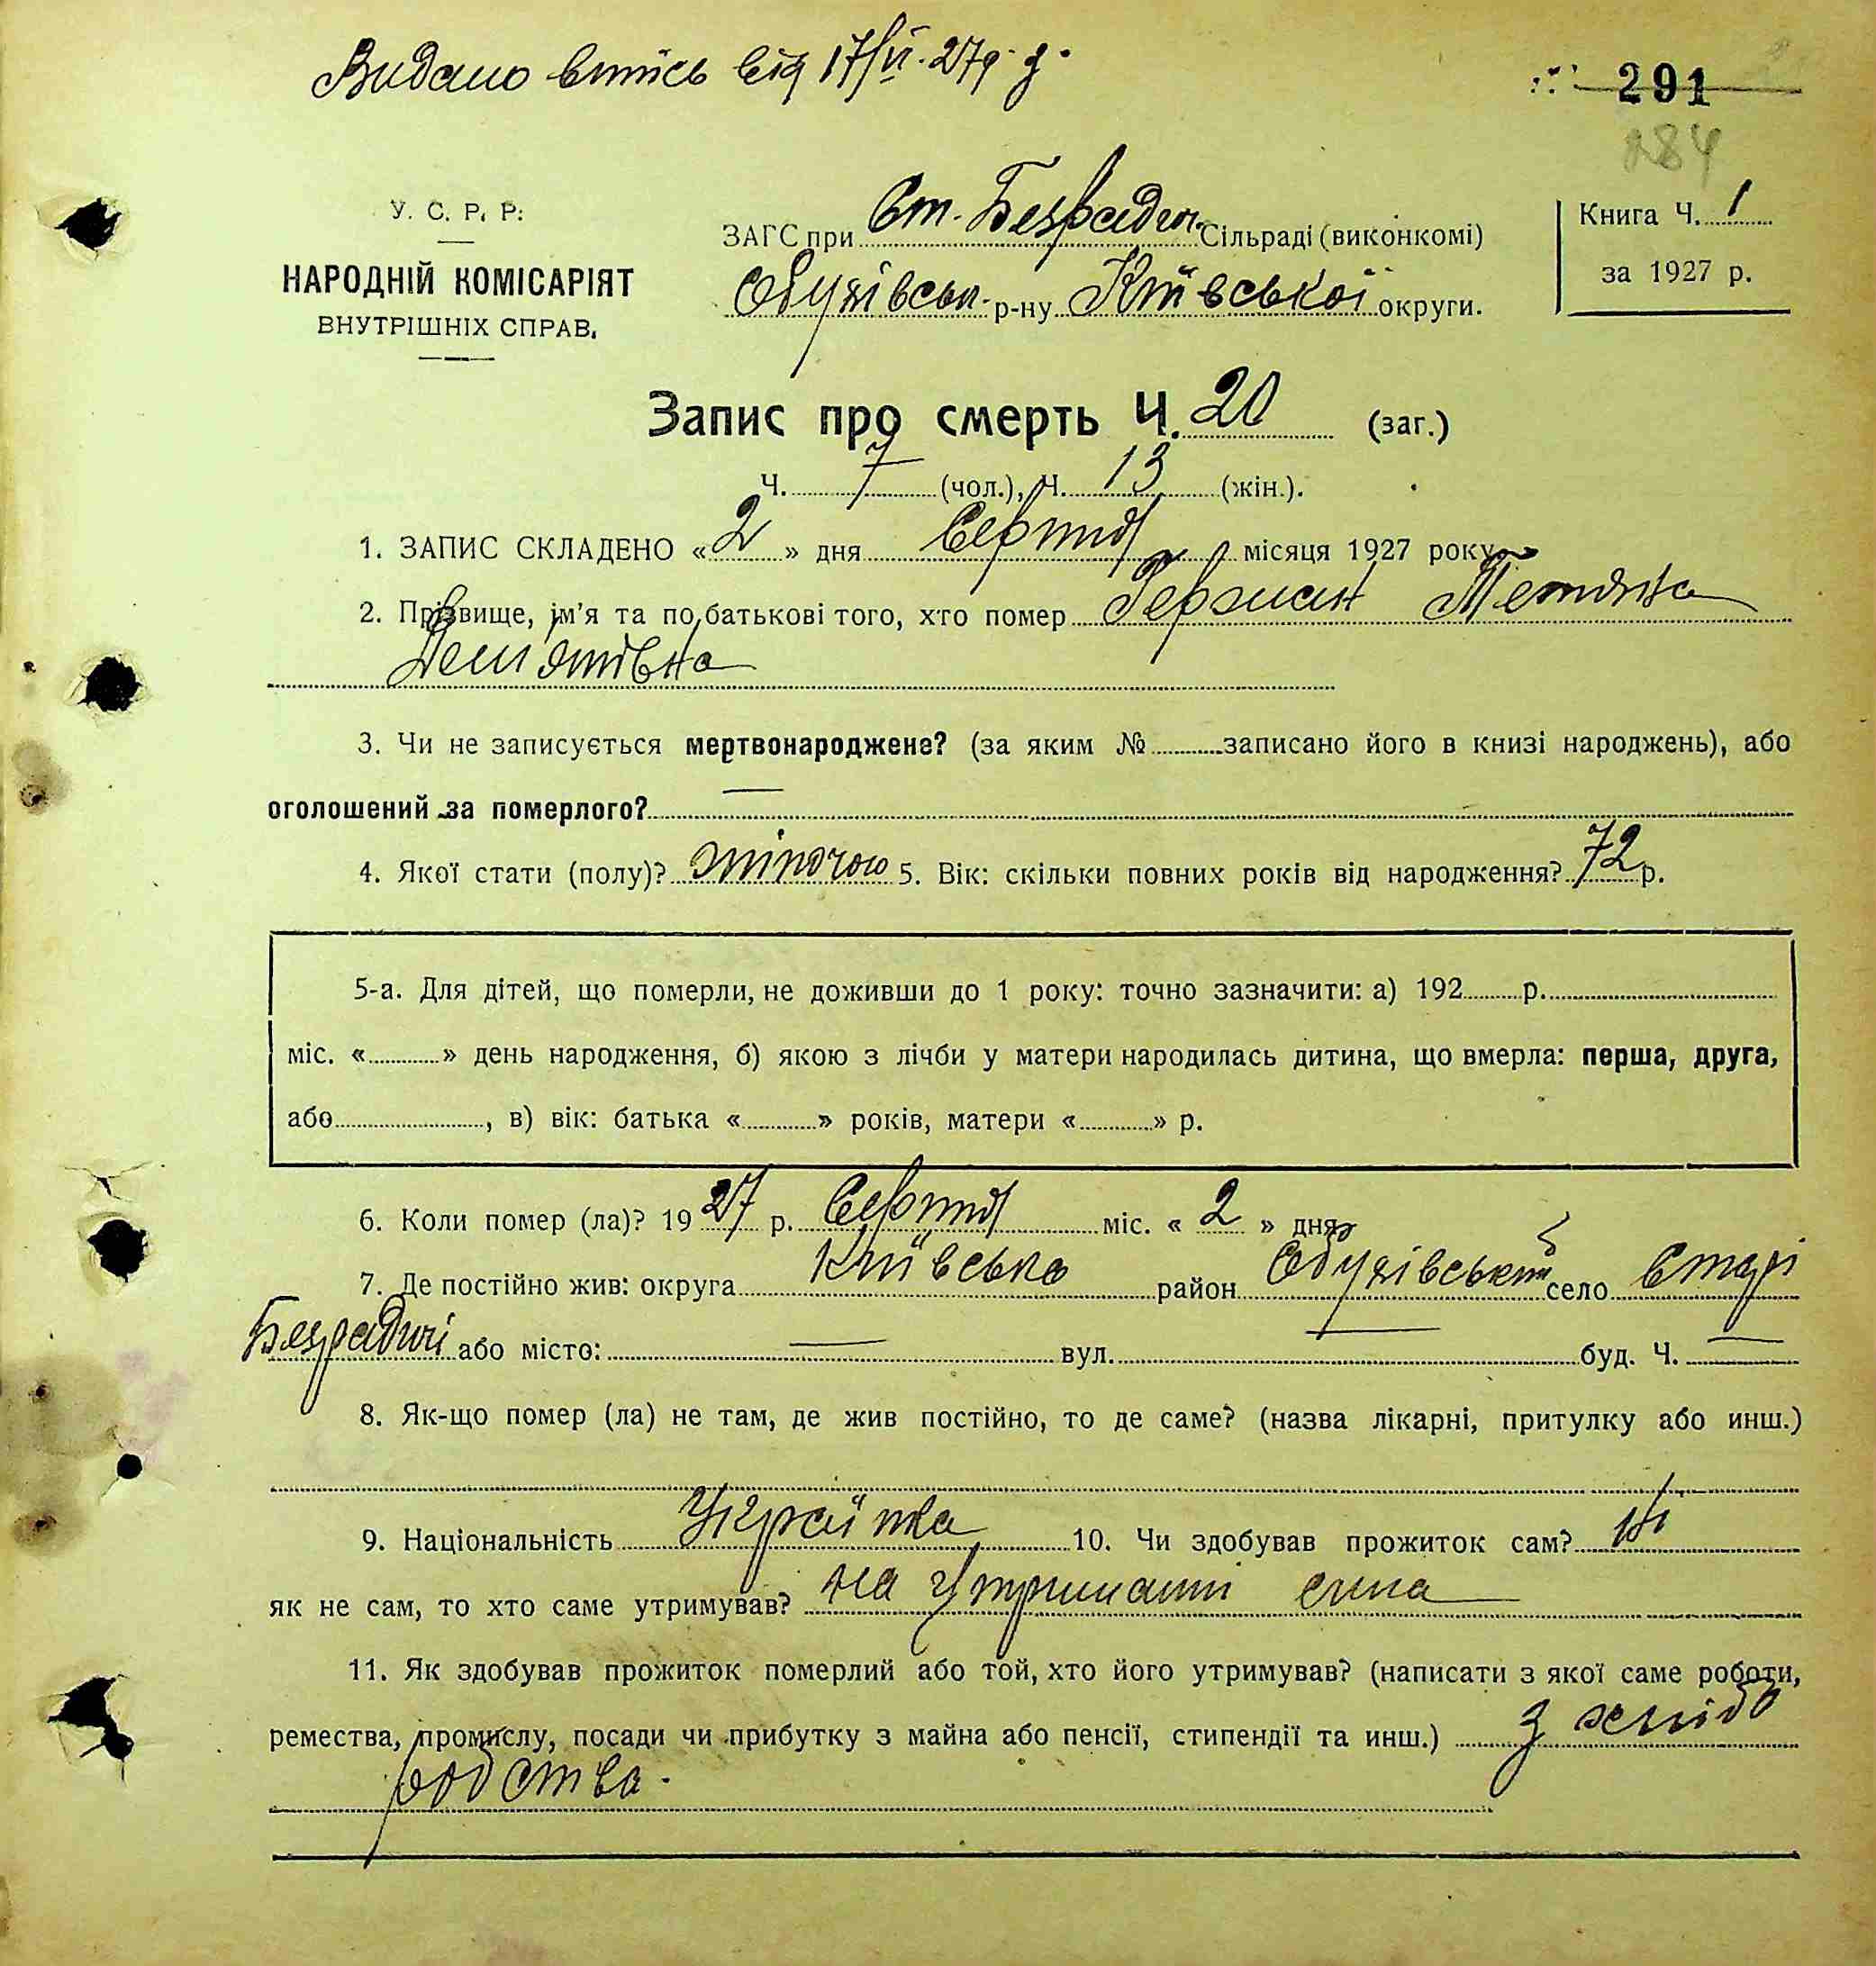 Видано витись від 17/VI. 27р.
291
284
У. С. Р. Р.
НАРОДНІЙ КОМІСАРІЯТ
ВНУТРІШНІХ СПРАВ.
ЗАГС при Ст. Безрадич. Сільраді (виконкомі)
Обухівськ. р-ну Київської округи.
Книга Ч. 1
за 1927 р.
Запис про смерть Ч. 20 (заг.)
Ч. 7 (чол.), Ч. 13 (жін.).
1. ЗАПИС СКЛАДЕНО «2» дня Серпня місяця 1927 року
2. Прізвище, ім'я та по батькові того, хто помер Герман Тетяна
Дем'янівна
3. Чи не записується мертвонароджене? (за яким № записано його в книзі народжень), або
оголошений за померлого?
4. Якої стати (полу)? жіночою 5. Вік: скільки повних років від народження? 72 р.
5-а. Для дітей, що померли, не доживши до 1 року: точно зазначити: а) 192 р.
міс. « » день народження, б) якою з лічби у матери народилась дитина, що вмерла: перша, друга,
або , в) вік: батька « » років, матери « » р.
6. Коли помер (ла)? 1927 р. Серпня міс. «2» дня
7. Де постійно жив: округа Київська район Обухівський село Старі
Безрадичі або місто: — вул. — буд. Ч. —
8. Як-що помер (ла) не там, де жив постійно, то де саме? (назва лікарні, притулку або инш.)
9. Національність Українка 10. Чи здобував прожиток сам? ні
як не сам, то хто саме утримував? на утриманні сина
11. Як здобував прожиток померлий або той, хто його утримував? (написати з якої саме роботи,
ремества, промислу, посади чи прибутку з майна або пенсії, стипендії та инш.) з хлібо
робства.